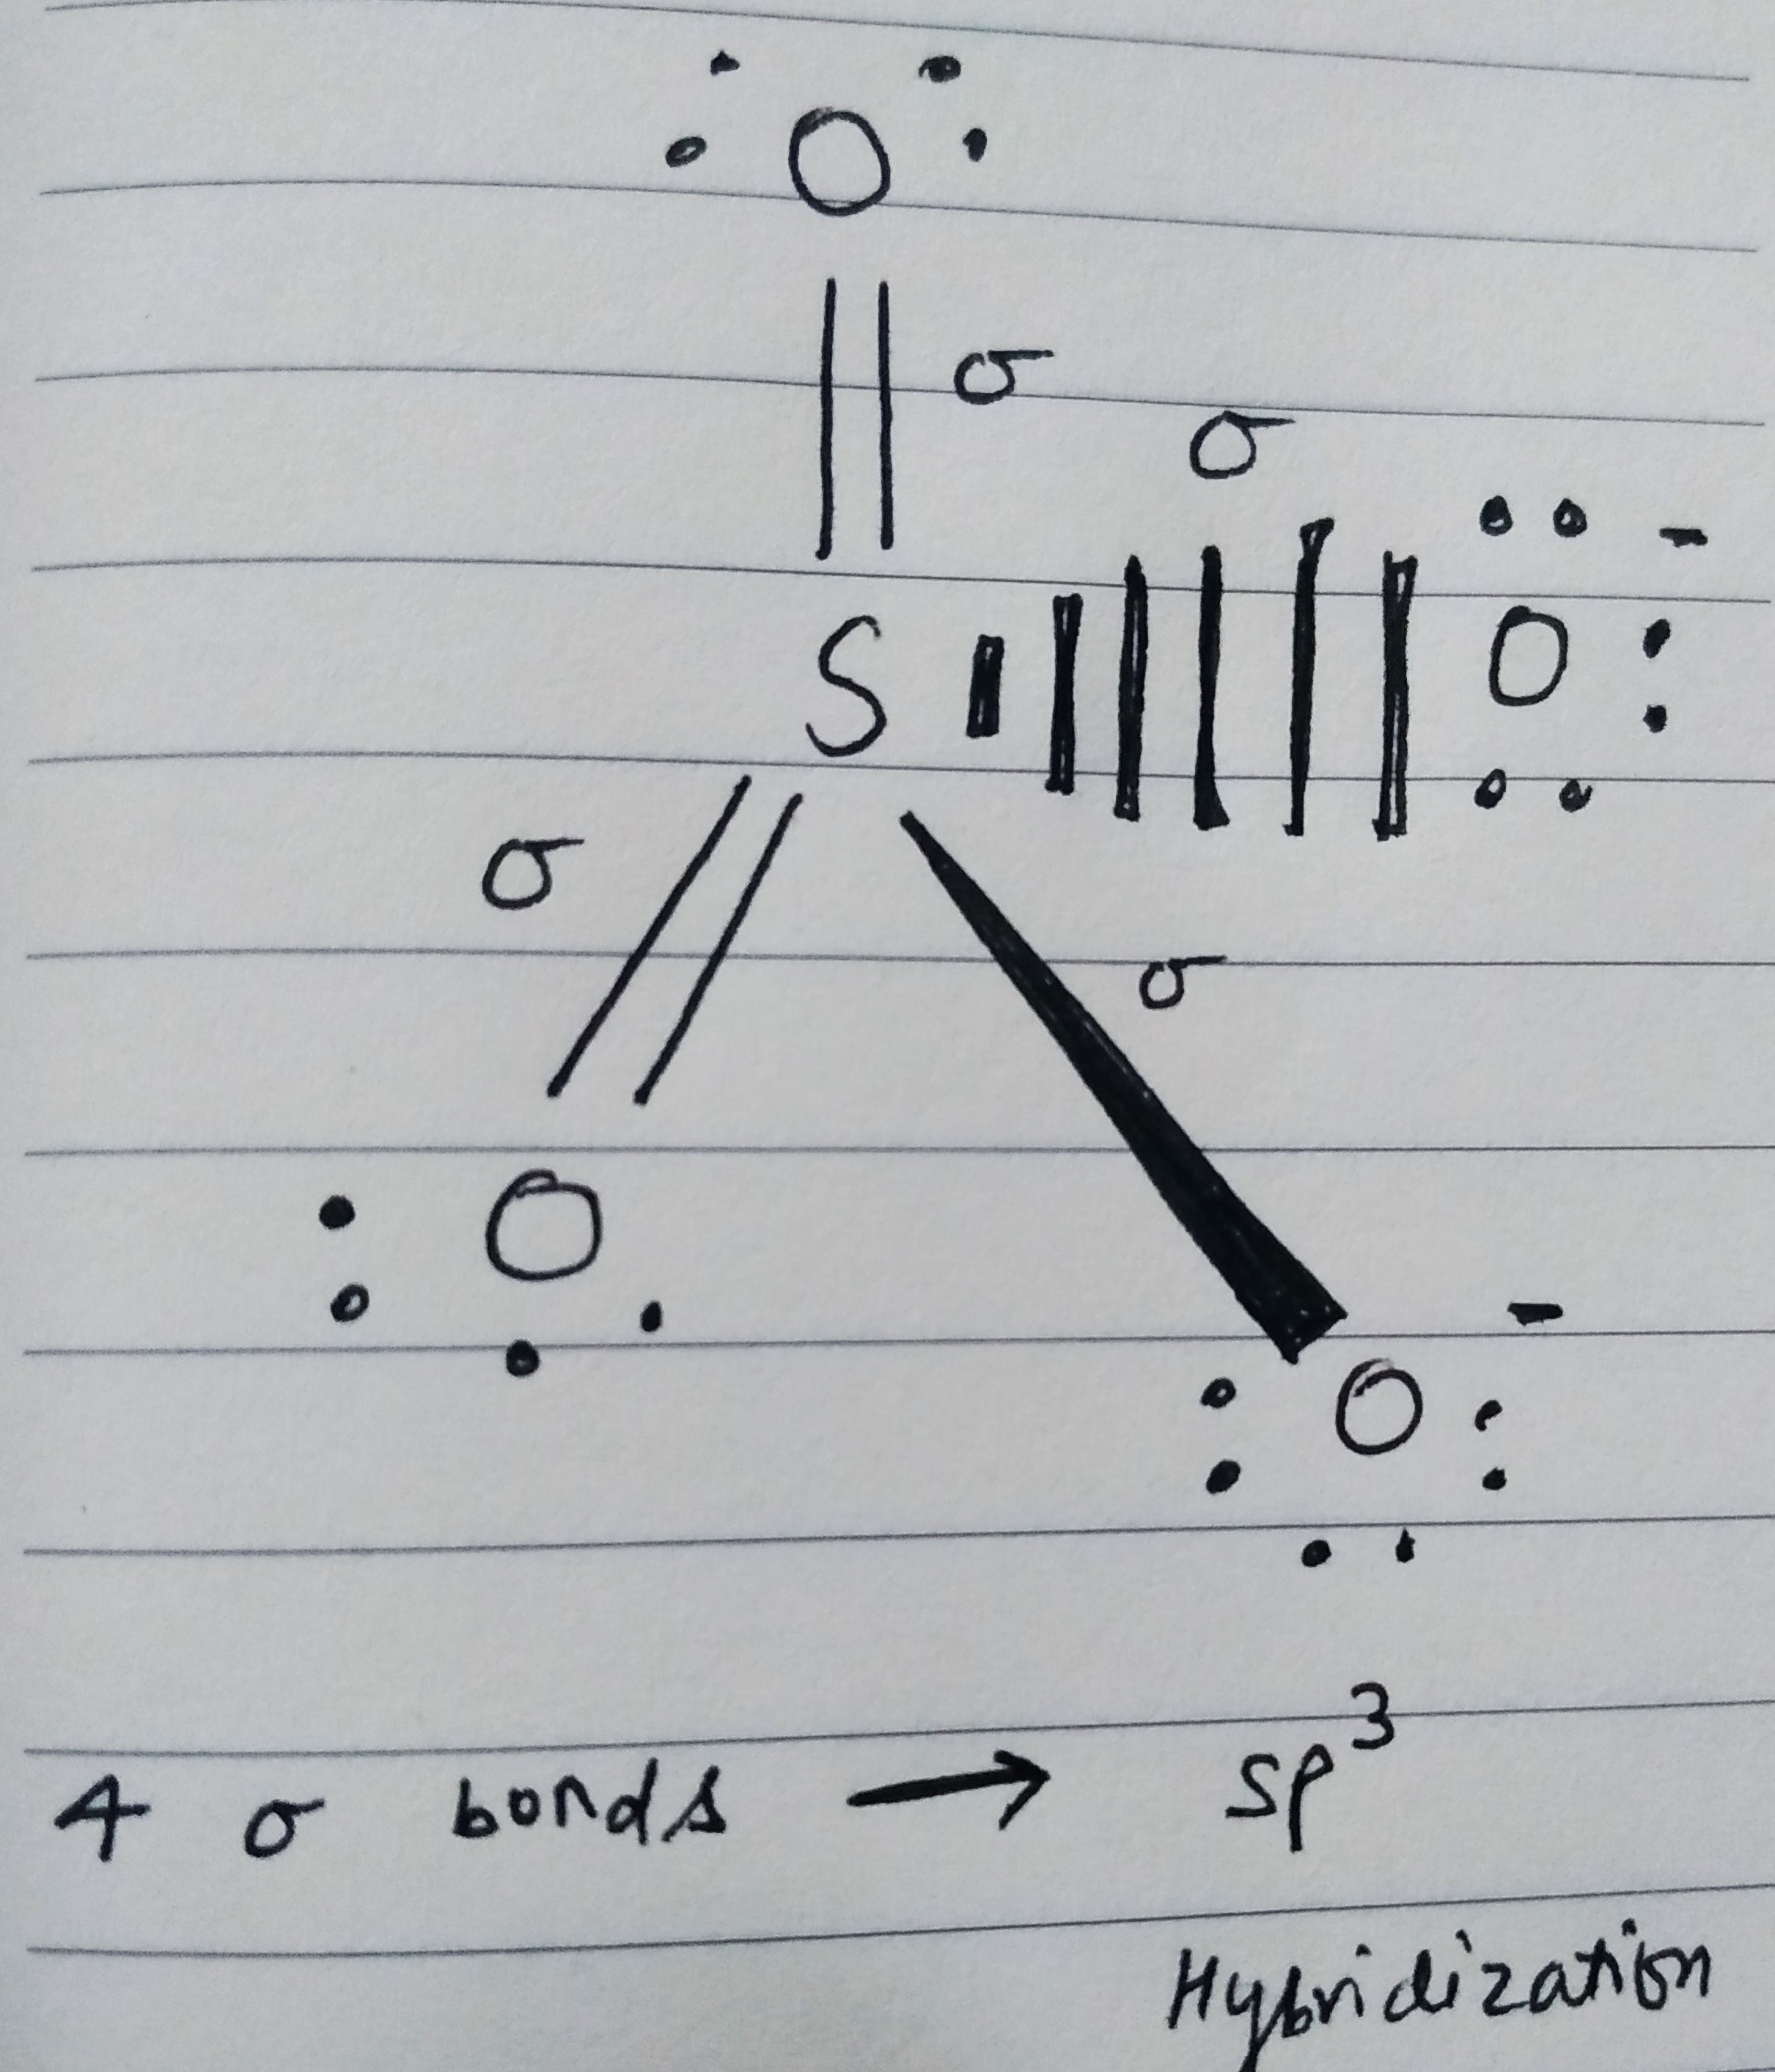 O
σ
σ
S O -
σ
σ
O
-
O
4 σ bonds → sp³
Hybridization